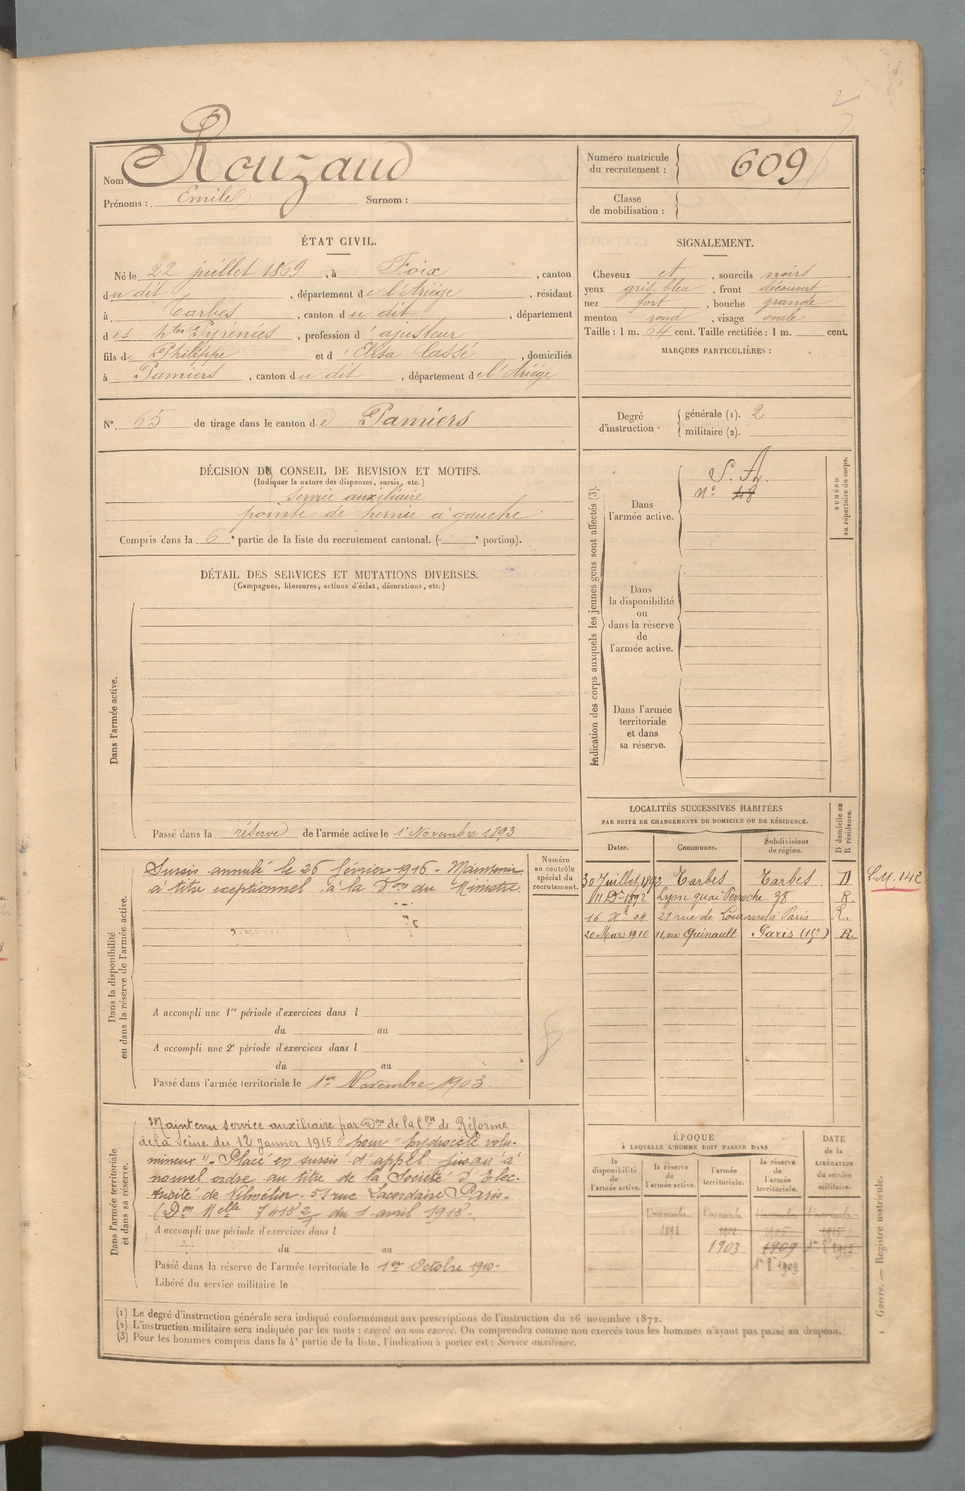 Nom : Rouzaud
Prénoms : Emile Surnom :
Numéro matricule du recrutement : 609
Classe de mobilisation :
ÉTAT CIVIL.
Né le 22 juillet 1869, à Foix, canton
du dit, département de l'Ariège, résidant
à Tarbes, canton du dit, département
des Htes Pyrénées, profession d'ajusteur
fils de Philippe et d'Elisa Cassé, domiciliés
à Pamiers, canton du dit, département de l'Ariège
SIGNALEMENT.
Cheveux et, sourcils noirs
yeux gris bleu, front découvert
nez fort, bouche grande
menton rond, visage ovale
Taille : 1 m. 64 cent. Taille rectifiée : 1 m. cent.
MARQUES PARTICULIÈRES :
N° 65 de tirage dans le canton de Pamiers
Degré d'instruction : générale (1). 2
militaire (2).
DÉCISION DU CONSEIL DE REVISION ET MOTIFS.
(Indiquer la nature des dispenses, sursis, etc.)
Service auxiliaire
pointe de hernie à gauche
Compris dans la 6e partie de la liste du recrutement cantonal. ( e portion).
DÉTAIL DES SERVICES ET MUTATIONS DIVERSES.
(Campagnes, blessures, actions d'éclat, décorations, etc.)
Dans l'armée active.
Passé dans la réserve de l'armée active le 1er Novembre 1893
Indication des corps auxquels les jeunes gens sont affectés (3).
Dans l'armée active.
S. A.
N° 48
NUMÉRO au répertoire du corps.
Dans la disponibilité ou dans la réserve de l'armée active.
Dans l'armée territoriale et dans sa réserve.
Dans la disponibilité ou dans la réserve de l'armée active.
Sursis annulé le 26 février 1916 - Maintenu
à titre exceptionnel à la Don du Ministre
Numéro au contrôle spécial du recrutement.
A accompli une 1re période d'exercices dans l
du au
A accompli une 2e période d'exercices dans l
du au
Passé dans l'armée territoriale le 1er Novembre 1903.
LOCALITÉS SUCCESSIVES HABITÉES
PAR SUITE DE CHANGEMENTS DE DOMICILE OU DE RÉSIDENCE.
Dates. Communes. Subdivisions de région. D domicile ou R résidence.
30 Juillet 1892 Tarbes Tarbes D L.M. 142
11 Dre 1892 Lyon quai Perrache 98 R.
16 Xe 04 21 rue de Paris R.
20 Mars 1910 11, rue Quinault Paris (15e) R.
Dans l'armée territoriale et dans sa réserve.
Maintenu service auxiliaire par Don de la Con de Réforme
de la Seine du 12 janvier 1915 pour "hydrocèle volu-
mineux" - Placé en sursis d'appel jusqu'à
nouvel ordre au titre de la Société d'Elec-
51 rue Lacordaire Paris -
(Don Melle 7418 2/7 du 1 avril 1918.
A accompli une période d'exercices dans l
du au
Passé dans la réserve de l'armée territoriale le 1er Octobre 1910.
Libéré du service militaire le
ÉPOQUE
À LAQUELLE L'HOMME DOIT PASSER DANS
la disponibilité de l'armée active. la réserve de l'armée active. l'armée territoriale. la réserve de l'armée territoriale.
DATE de la LIBÉRATION du service militaire.
1er novembre 1er novembre 1er novembre 1er novembre
1893
1903 1909
(1) Le degré d'instruction générale sera indiqué conformément aux prescriptions de l'instruction du 26 novembre 1872.
(2) L'instruction militaire sera indiquée par les mots : exercé ou non exercé. On comprendra comme non exercés tous les hommes n'ayant pas passé au drapeau.
(3) Pour les hommes compris dans la 4e partie de la liste, l'indication à porter est : Service auxiliaire.
Guerre. — Registre matricule.